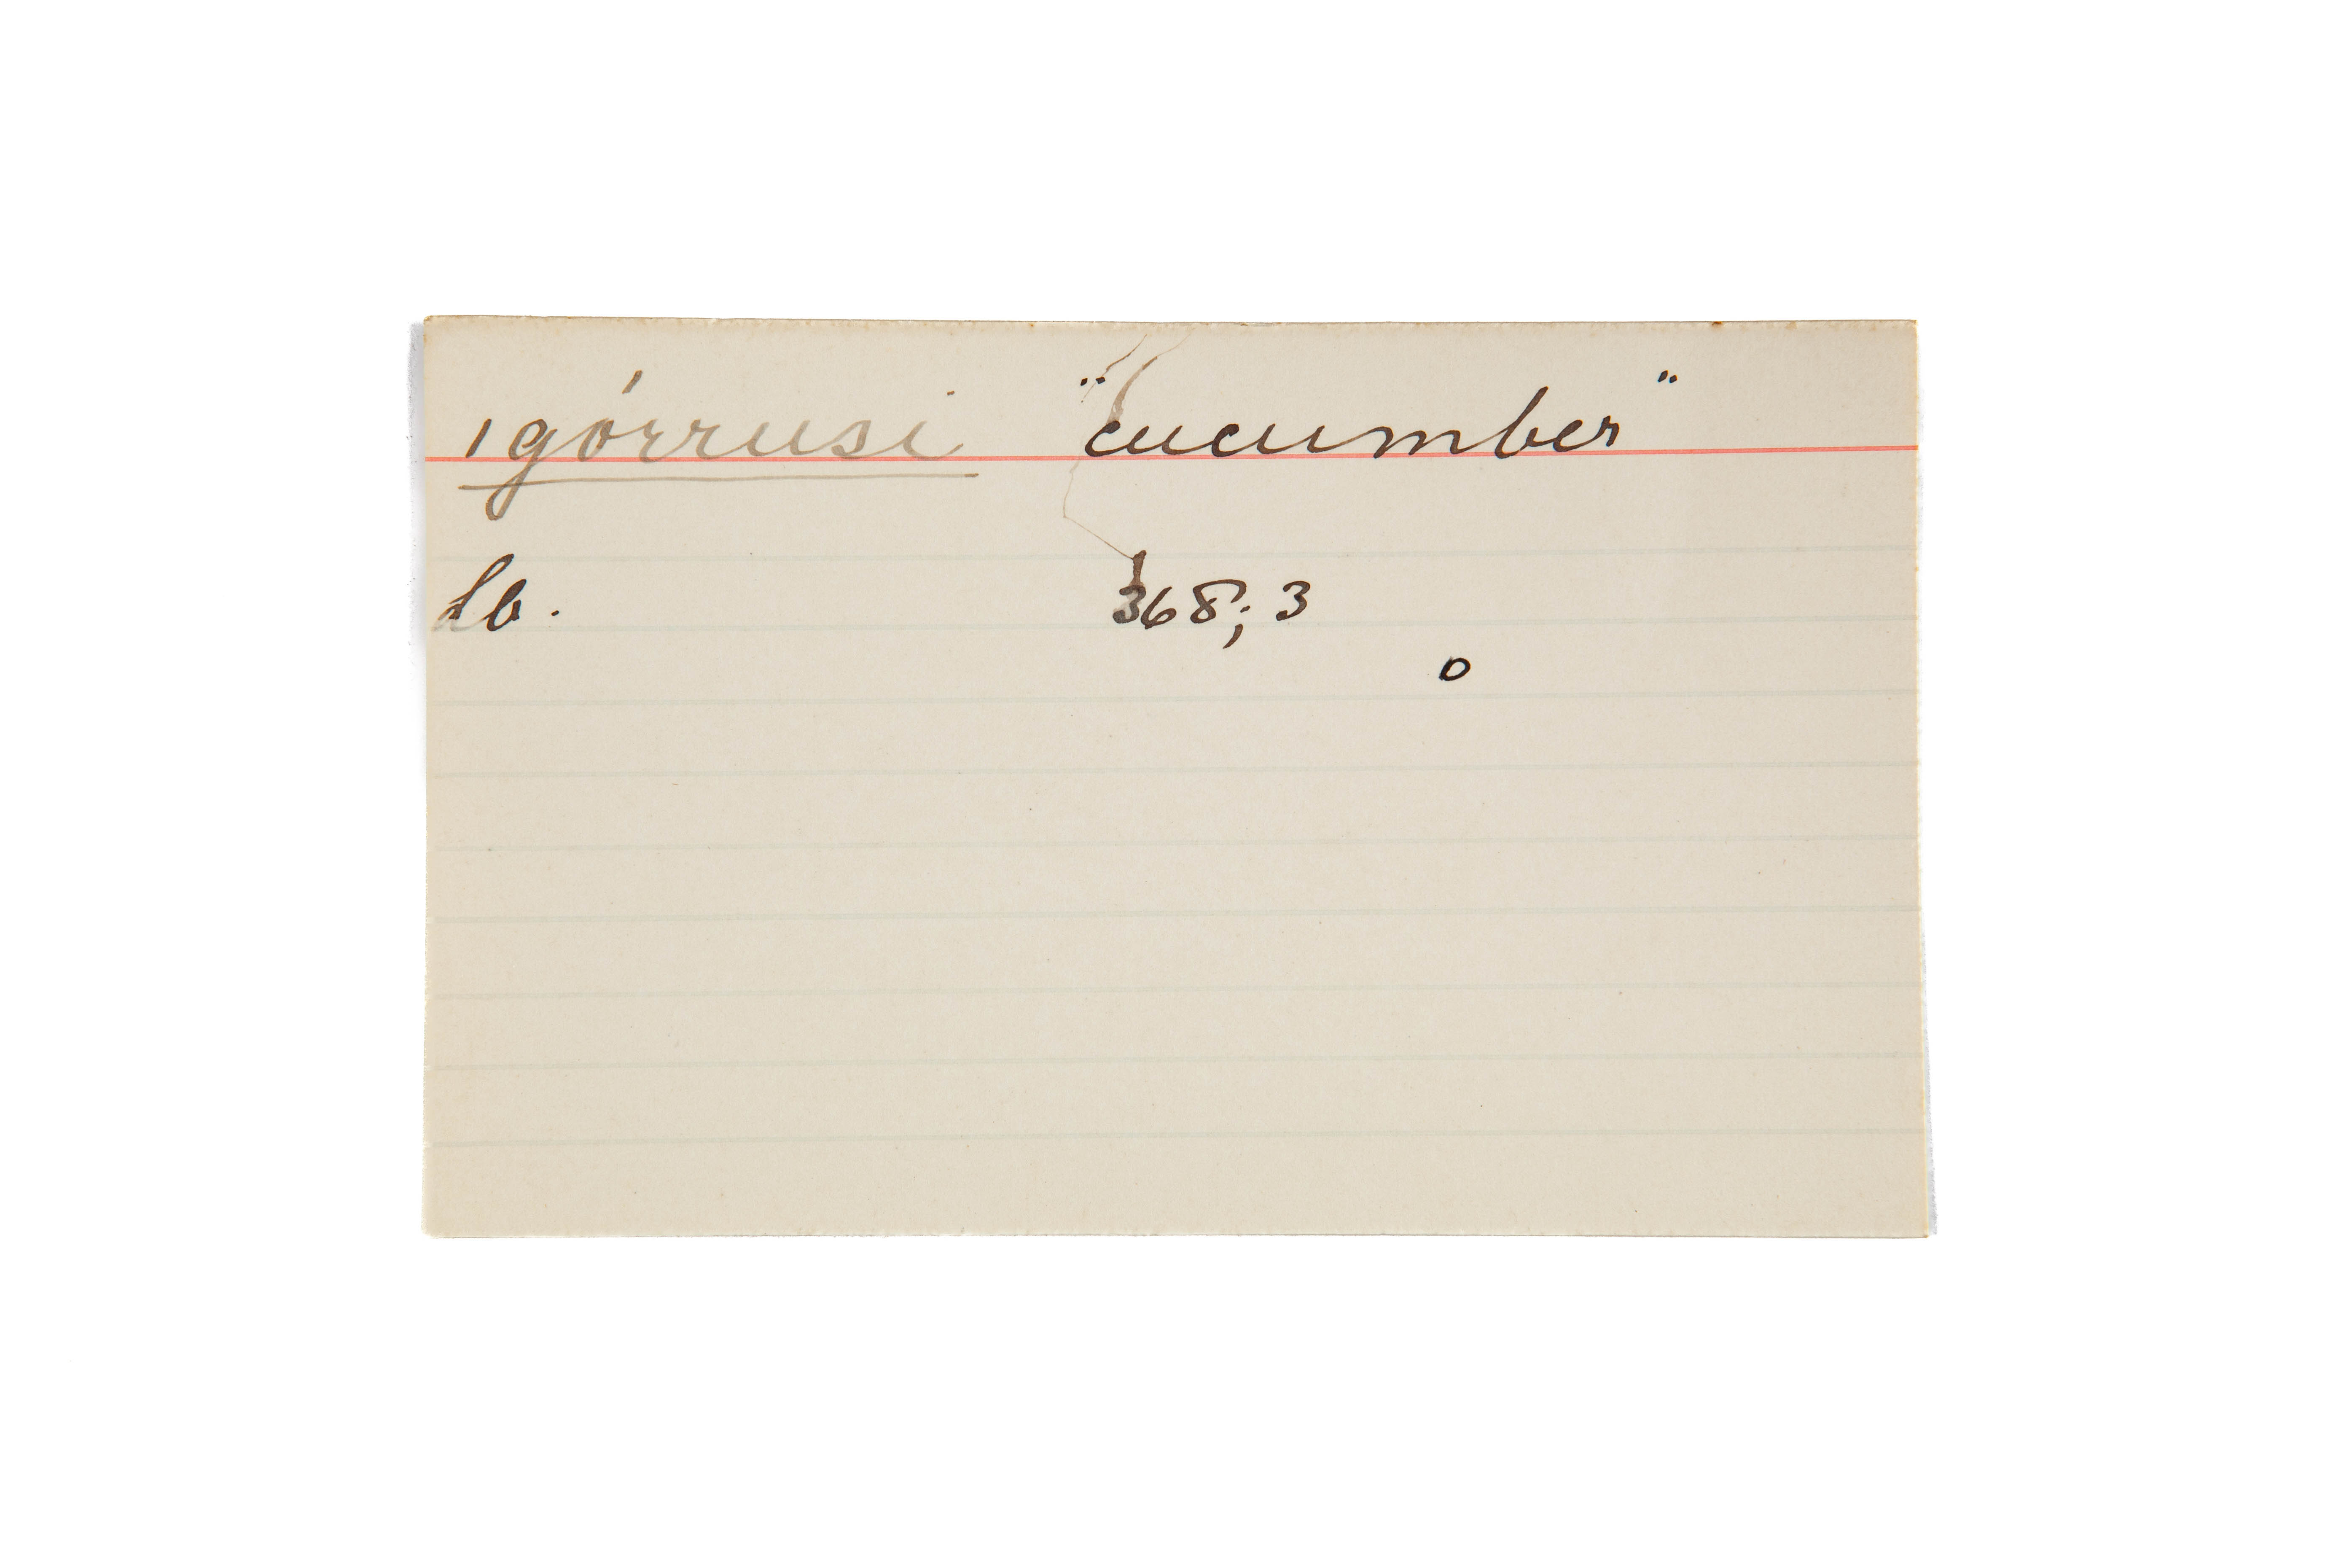 igórrusi "cucumber"
Lb. 368; 3
o